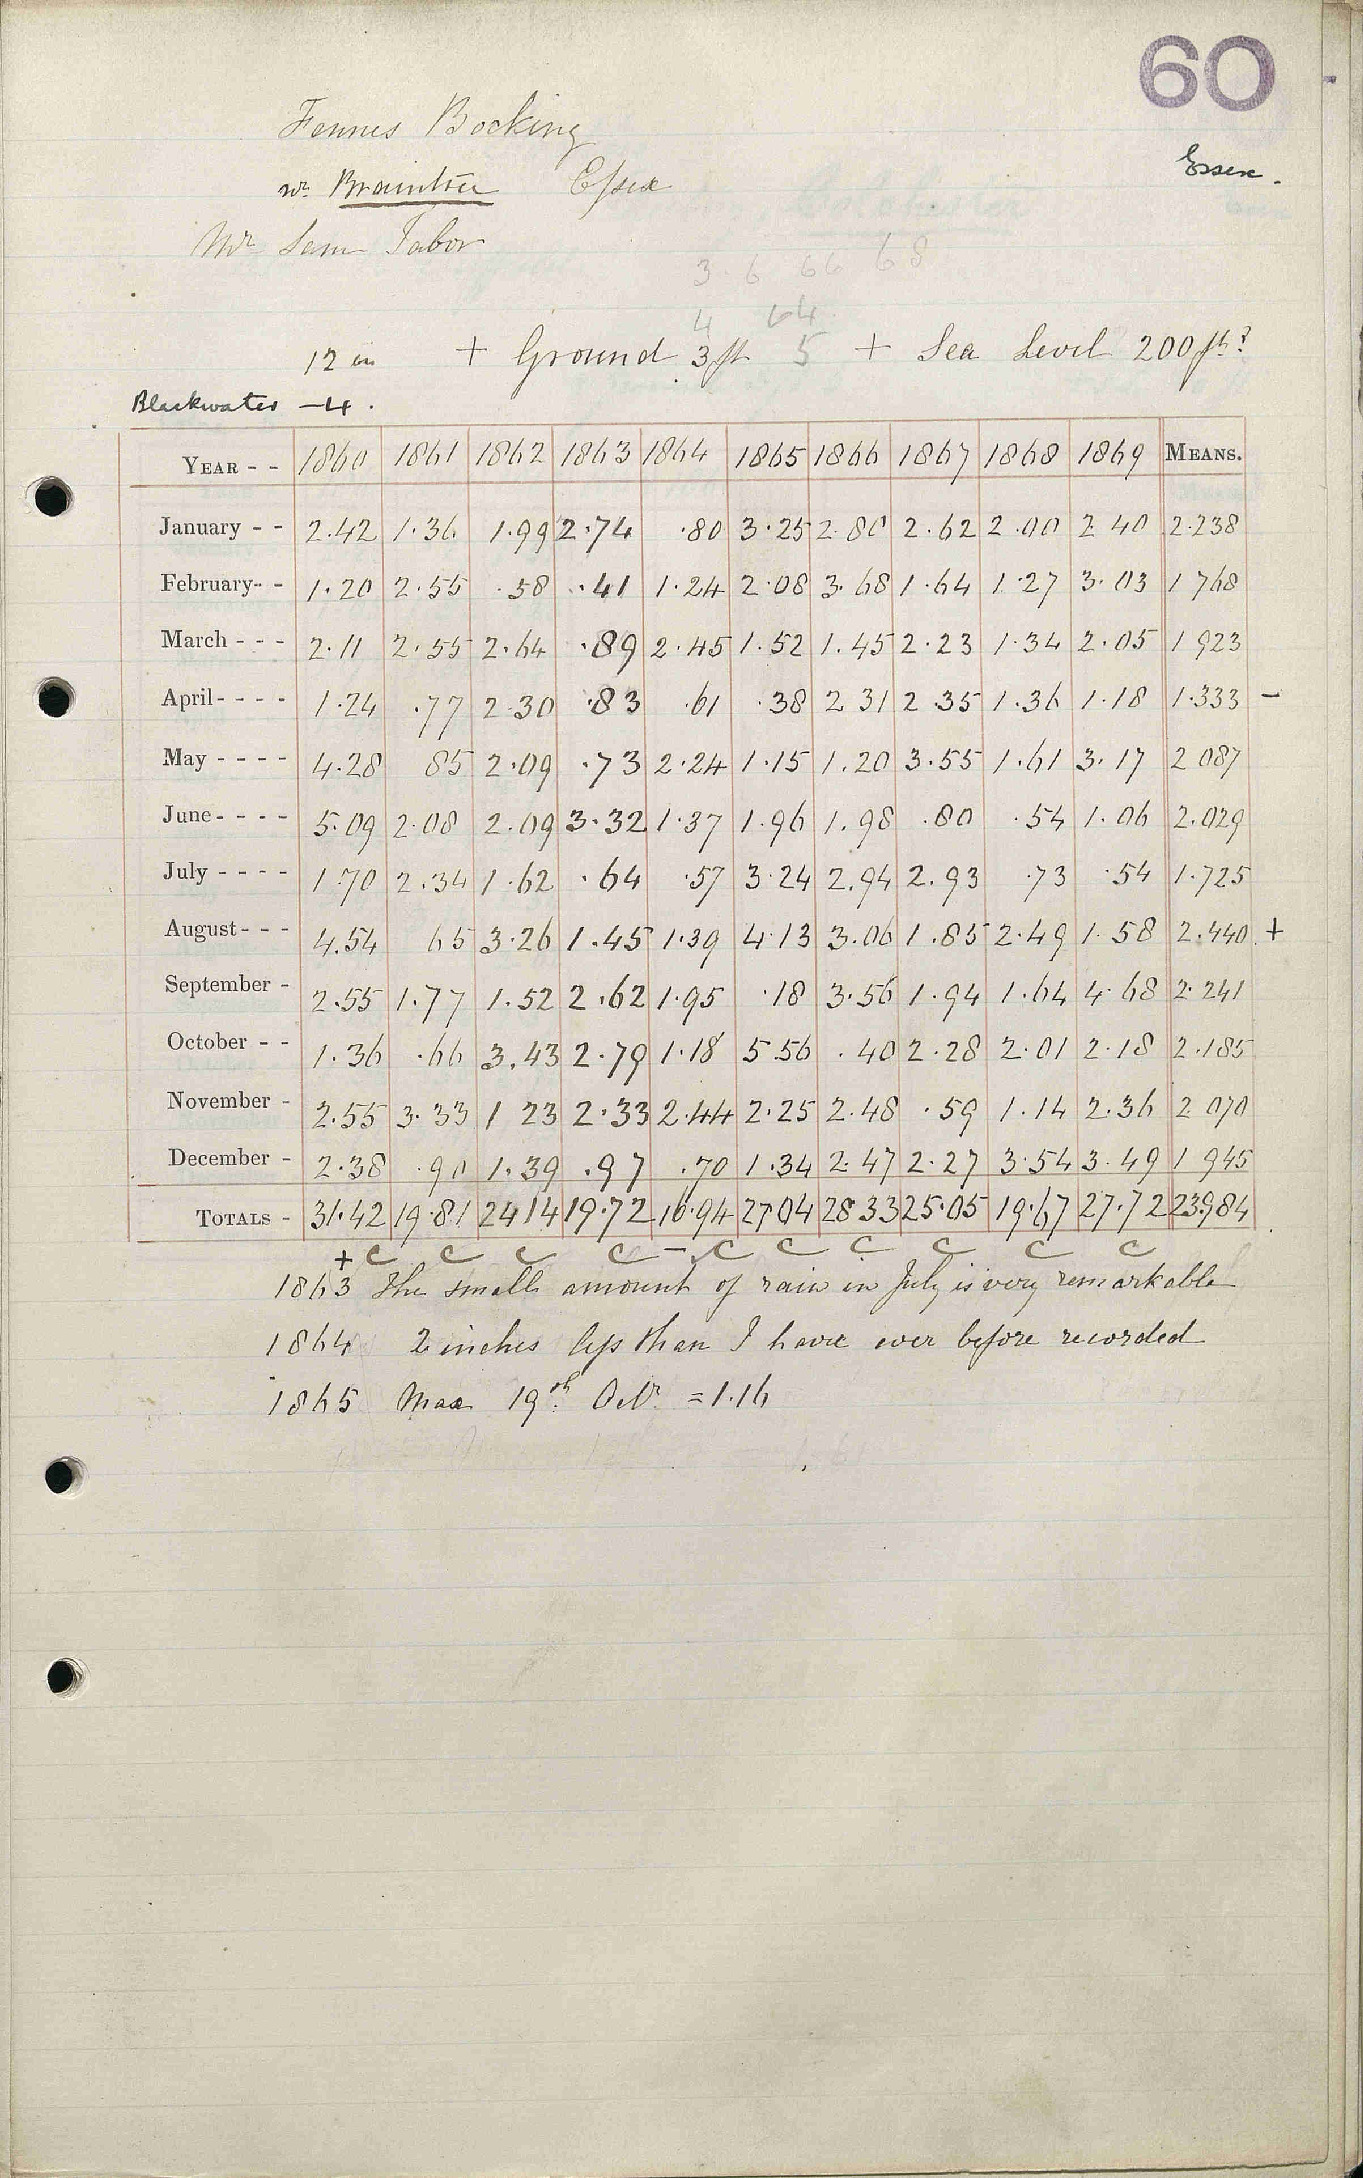 60
Essex.
Fennes Bocking
nr. Braintree Essex
Mr Sam Tabor
3. 6 66 68
4 64
12 in + Ground 3 ft 5 + Sea Level 200 ft?
Blackwater - 4.
YEAR - - 1860 1861 1862 1863 1864 1865 1866 1867 1868 1869 MEANS.
January - - 2.42 1.36 1.99 2.74 .80 3.25 2.80 2.62 2.00 2 40 2.238
February- - 1.20 2.55 .58 .41 1.24 2.08 3.68 1.64 1.27 3.03 1 768
March - - - 2.11 2.55 2.64 .89 2.45 1.52 1.45 2.23 1.34 2.05 1 923
April- - - - 1.24 .77 2.30 .83 .61 .38 2 31 2.35 1.36 1.18 1.333 -
May - - - - 4.28 85 2.09 .73 2.24 1.15 1.20 3.55 1.61 3.17 2 087
June- - - - 5.09 2.08 2.09 3.32 1.37 1.96 1.98 .80 .54 1.06 2.029
July - - - - 1.70 2.34 1.62 .64 .57 3.24 2.94 2.93 .73 .54 1.725
August- - - 4.54 65 3.26 1.45 1.39 4.13 3.06 1.85 2.49 1.58 2.440 +
September - 2.55 1.77 1.52 2.62 1.95 .18 3.56 1.94 1.64 4.68 2.241
October - - 1.36 .66 3.43 2.79 1.18 5.56 .40 2.28 2.01 2.18 2.185
November - 2.55 3.33 1 23 2.33 2.44 2.25 2.48 .59 1.14 2.36 2 070
December - 2.38 .90 1.39 .97 .70 1.34 2.47 2.27 3.54 3.49 1 945
TOTALS - 31.42 19.81 24 14 19.72 16.94 27.04 28 33 25.05 19.67 27.72 23.984
+ C C C C - C C C C C C
1863 The small amount of rain in July is very remarkable
1864 2 inches less than I have ever before recorded
1865 Max 19th Octr = 1.16